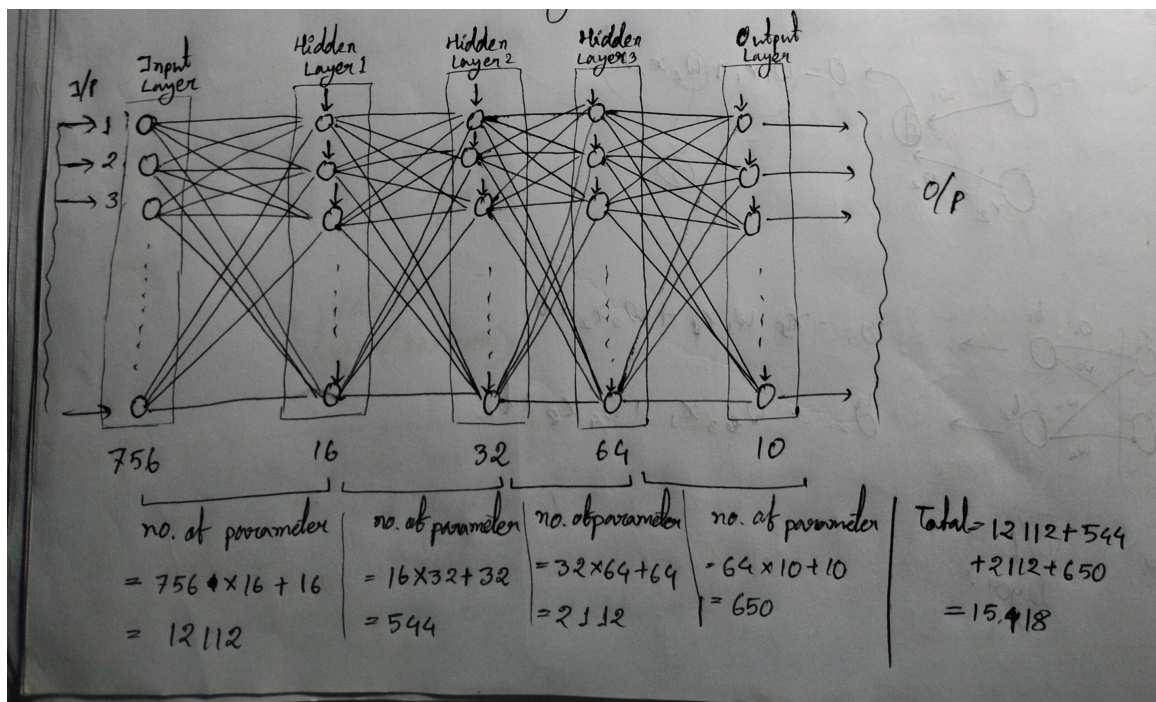 I/P
Input
Layer
Hidden
Layer 1
Hidden
Layer 2
Hidden
Layer 3
Output
Layer
1
2
3
O/P
756
16
32
64
10
no. of parameter
= 756 × 16 + 16
= 12112
no. of parameter
= 16×32+32
= 544
no. of parameter
= 32×64+64
= 2112
no. of parameter
= 64×10+10
= 650
Total = 12112+544
+2112+650
= 15,418